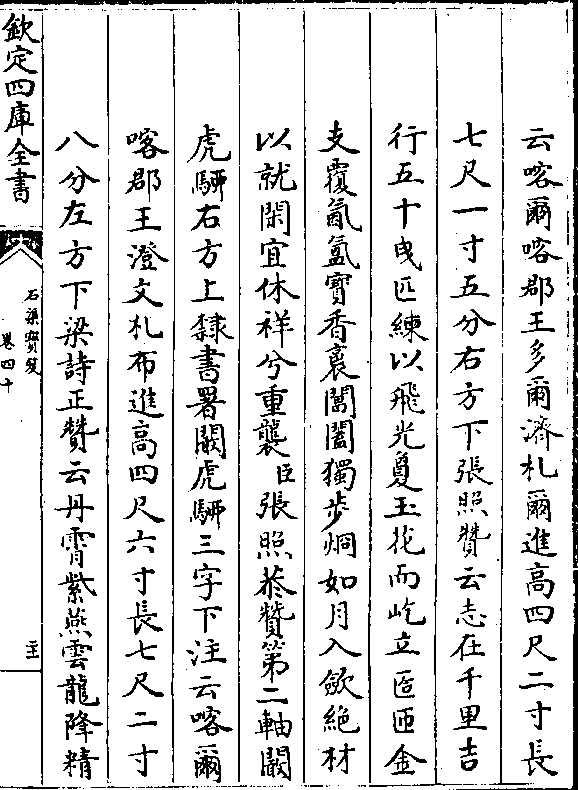 云喀爾喀郡王多爾濟札爾進高四尺二寸長
七尺一寸五分右方下張照贊云志在千里吉
行五十曵匹練以飛光戛玉花而屹立匼匝金
支覆氤氲寳香裊閶闔獨步烱如月入歛絶材
以就閑宜休祥兮重襲臣張照恭贊第二軸闞
虎騮右方上隸書署闞虎騮三字下注云喀爾
喀郡王澄文札布進高四尺六寸長七尺二寸
八分左方下梁詩正贊云丹霄紫燕雲龍降精
欽定四庫全書
石渠寳笈
卷四十